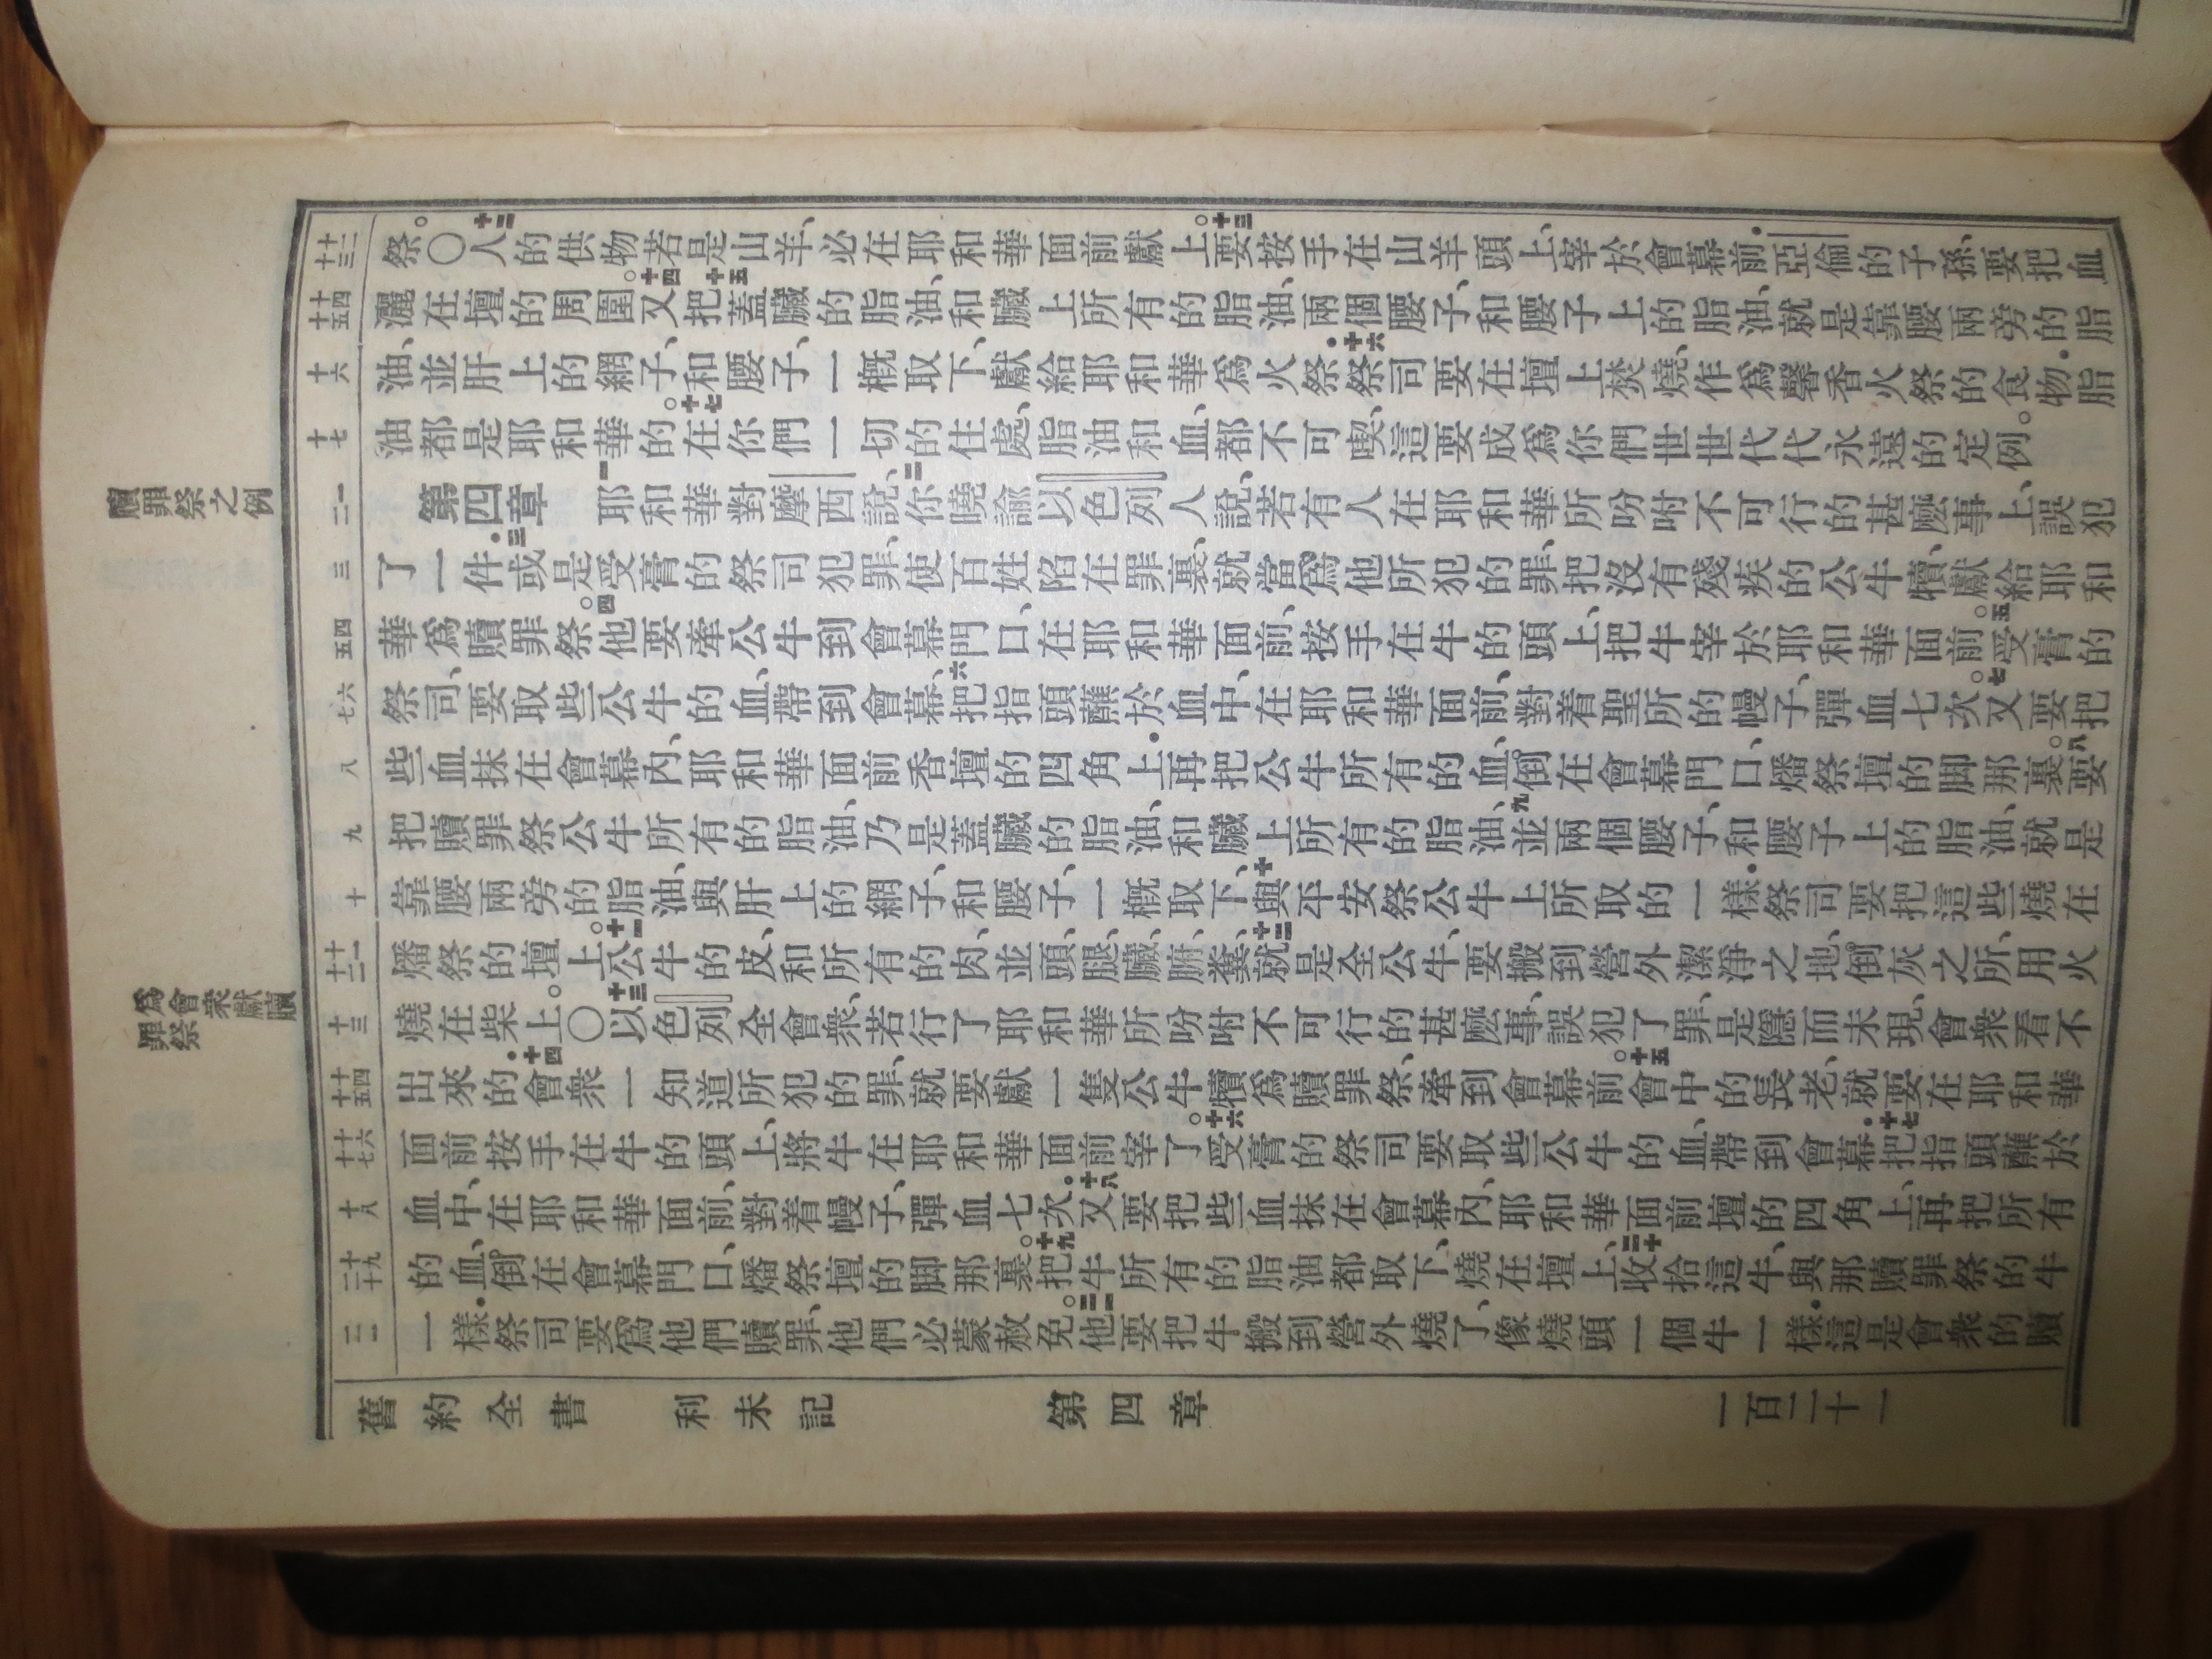 贖罪祭之例
爲會衆獻贖
罪祭
十二 十三
十四 十五
十六
十七
一 二
三
四 五
六 七
八
九
十
十一 十二
十三
十四 十五
十六 十七
十八
十九 二十
二一
祭。〇十二人的供物若是山羊、必在耶和華面前獻上。十三要按手在山羊頭上、宰於會幕前．亞倫的子孫、要把血
灑在壇的周圍。十四又把蓋臟的脂油、和臟上所有的脂油、十五兩個腰子、和腰子上的脂油、就是靠腰兩旁的脂
油、並肝上的網子、和腰子、一概取下、獻給耶和華爲火祭．十六祭司要在壇上焚燒、作爲馨香火祭的食物．脂
油都是耶和華的。十七在你們一切的住處、脂油和血、都不可喫、這要成爲你們世世代代永遠的定例。
第四章 一耶和華對摩西說、二你曉諭以色列人說、若有人在耶和華所吩咐不可行的甚麼事上、誤犯
了一件．三或是受膏的祭司犯罪、使百姓陷在罪裏、就當爲他所犯的罪、把沒有殘疾的公牛犢、獻給耶和
華爲贖罪祭。四他要牽公牛到會幕門口、在耶和華面前、按手在牛的頭上、把牛宰於耶和華面前。五受膏的
祭司、要取些公牛的血、帶到會幕、六把指頭蘸於血中、在耶和華面前、對着聖所的幔子、彈血七次。七又要把
些血抹在會幕內、耶和華面前香壇的四角上．再把公牛所有的血、倒在會幕門口、燔祭壇的脚那裏。八要
把贖罪祭公牛所有的脂油、乃是蓋臟的脂油、和臟上所有的脂油、九並兩個腰子、和腰子上的脂油、就是
靠腰兩旁的脂油、與肝上的網子、和腰子、一概取下、十與平安祭公牛上所取的一樣．祭司要把這些燒在
燔祭的壇上。十一公牛的皮、和所有的肉、並頭、腿、臟、腑、糞、十二就是全公牛、要搬到營外潔淨之地、倒灰之所、用火
燒在柴上。〇十三以色列全會衆、若行了耶和華所吩咐不可行的甚麼事、誤犯了罪、是隱而未現、會衆看不
出來的．十四會衆一知道所犯的罪、就要獻一隻公牛犢爲贖罪祭、牽到會幕前．十五會中的長老、就要在耶和華
面前按手在牛的頭上、將牛在耶和華面前宰了。十六受膏的祭司要取些公牛的血、帶到會幕．十七把指頭蘸於
血中、在耶和華面前、對着幔子、彈血七次．十八又要把些血抹在會幕內、耶和華面前壇的四角上、再把所有
的血、倒在會幕門口、燔祭壇的脚那裏。十九把牛所有的脂油都取下、燒在壇上、二十收拾這牛、與那贖罪祭的牛
一樣．祭司要爲他們贖罪、他們必蒙赦免。二一他要把牛搬到營外燒了、像燒頭一個牛一樣．這是會衆的贖
舊約全書 利未記 第四章 一百二十一